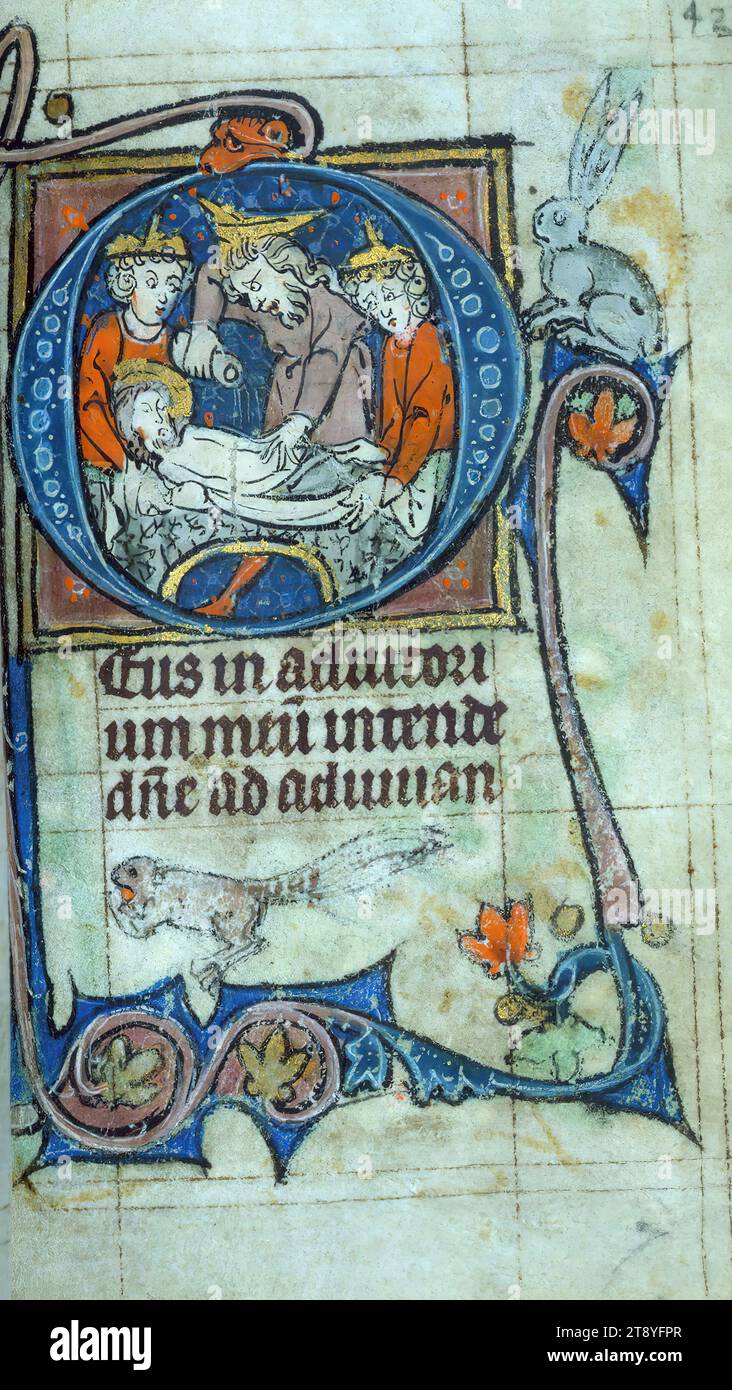 42
Eus in adiutori
um meū intende
dn̄e ad adiuuan
alamy
Image ID: 2T8YFPR
www.alamy.com